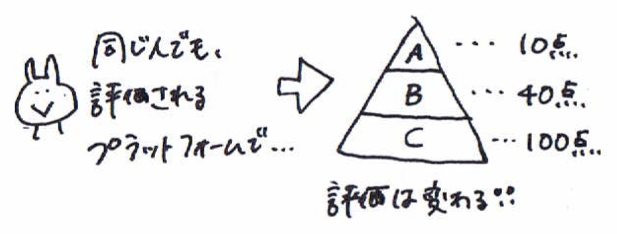 同じ人でも、
評価される
プラットフォームで…
A … 10点
B … 40点
C … 100点
評価は変わる!!